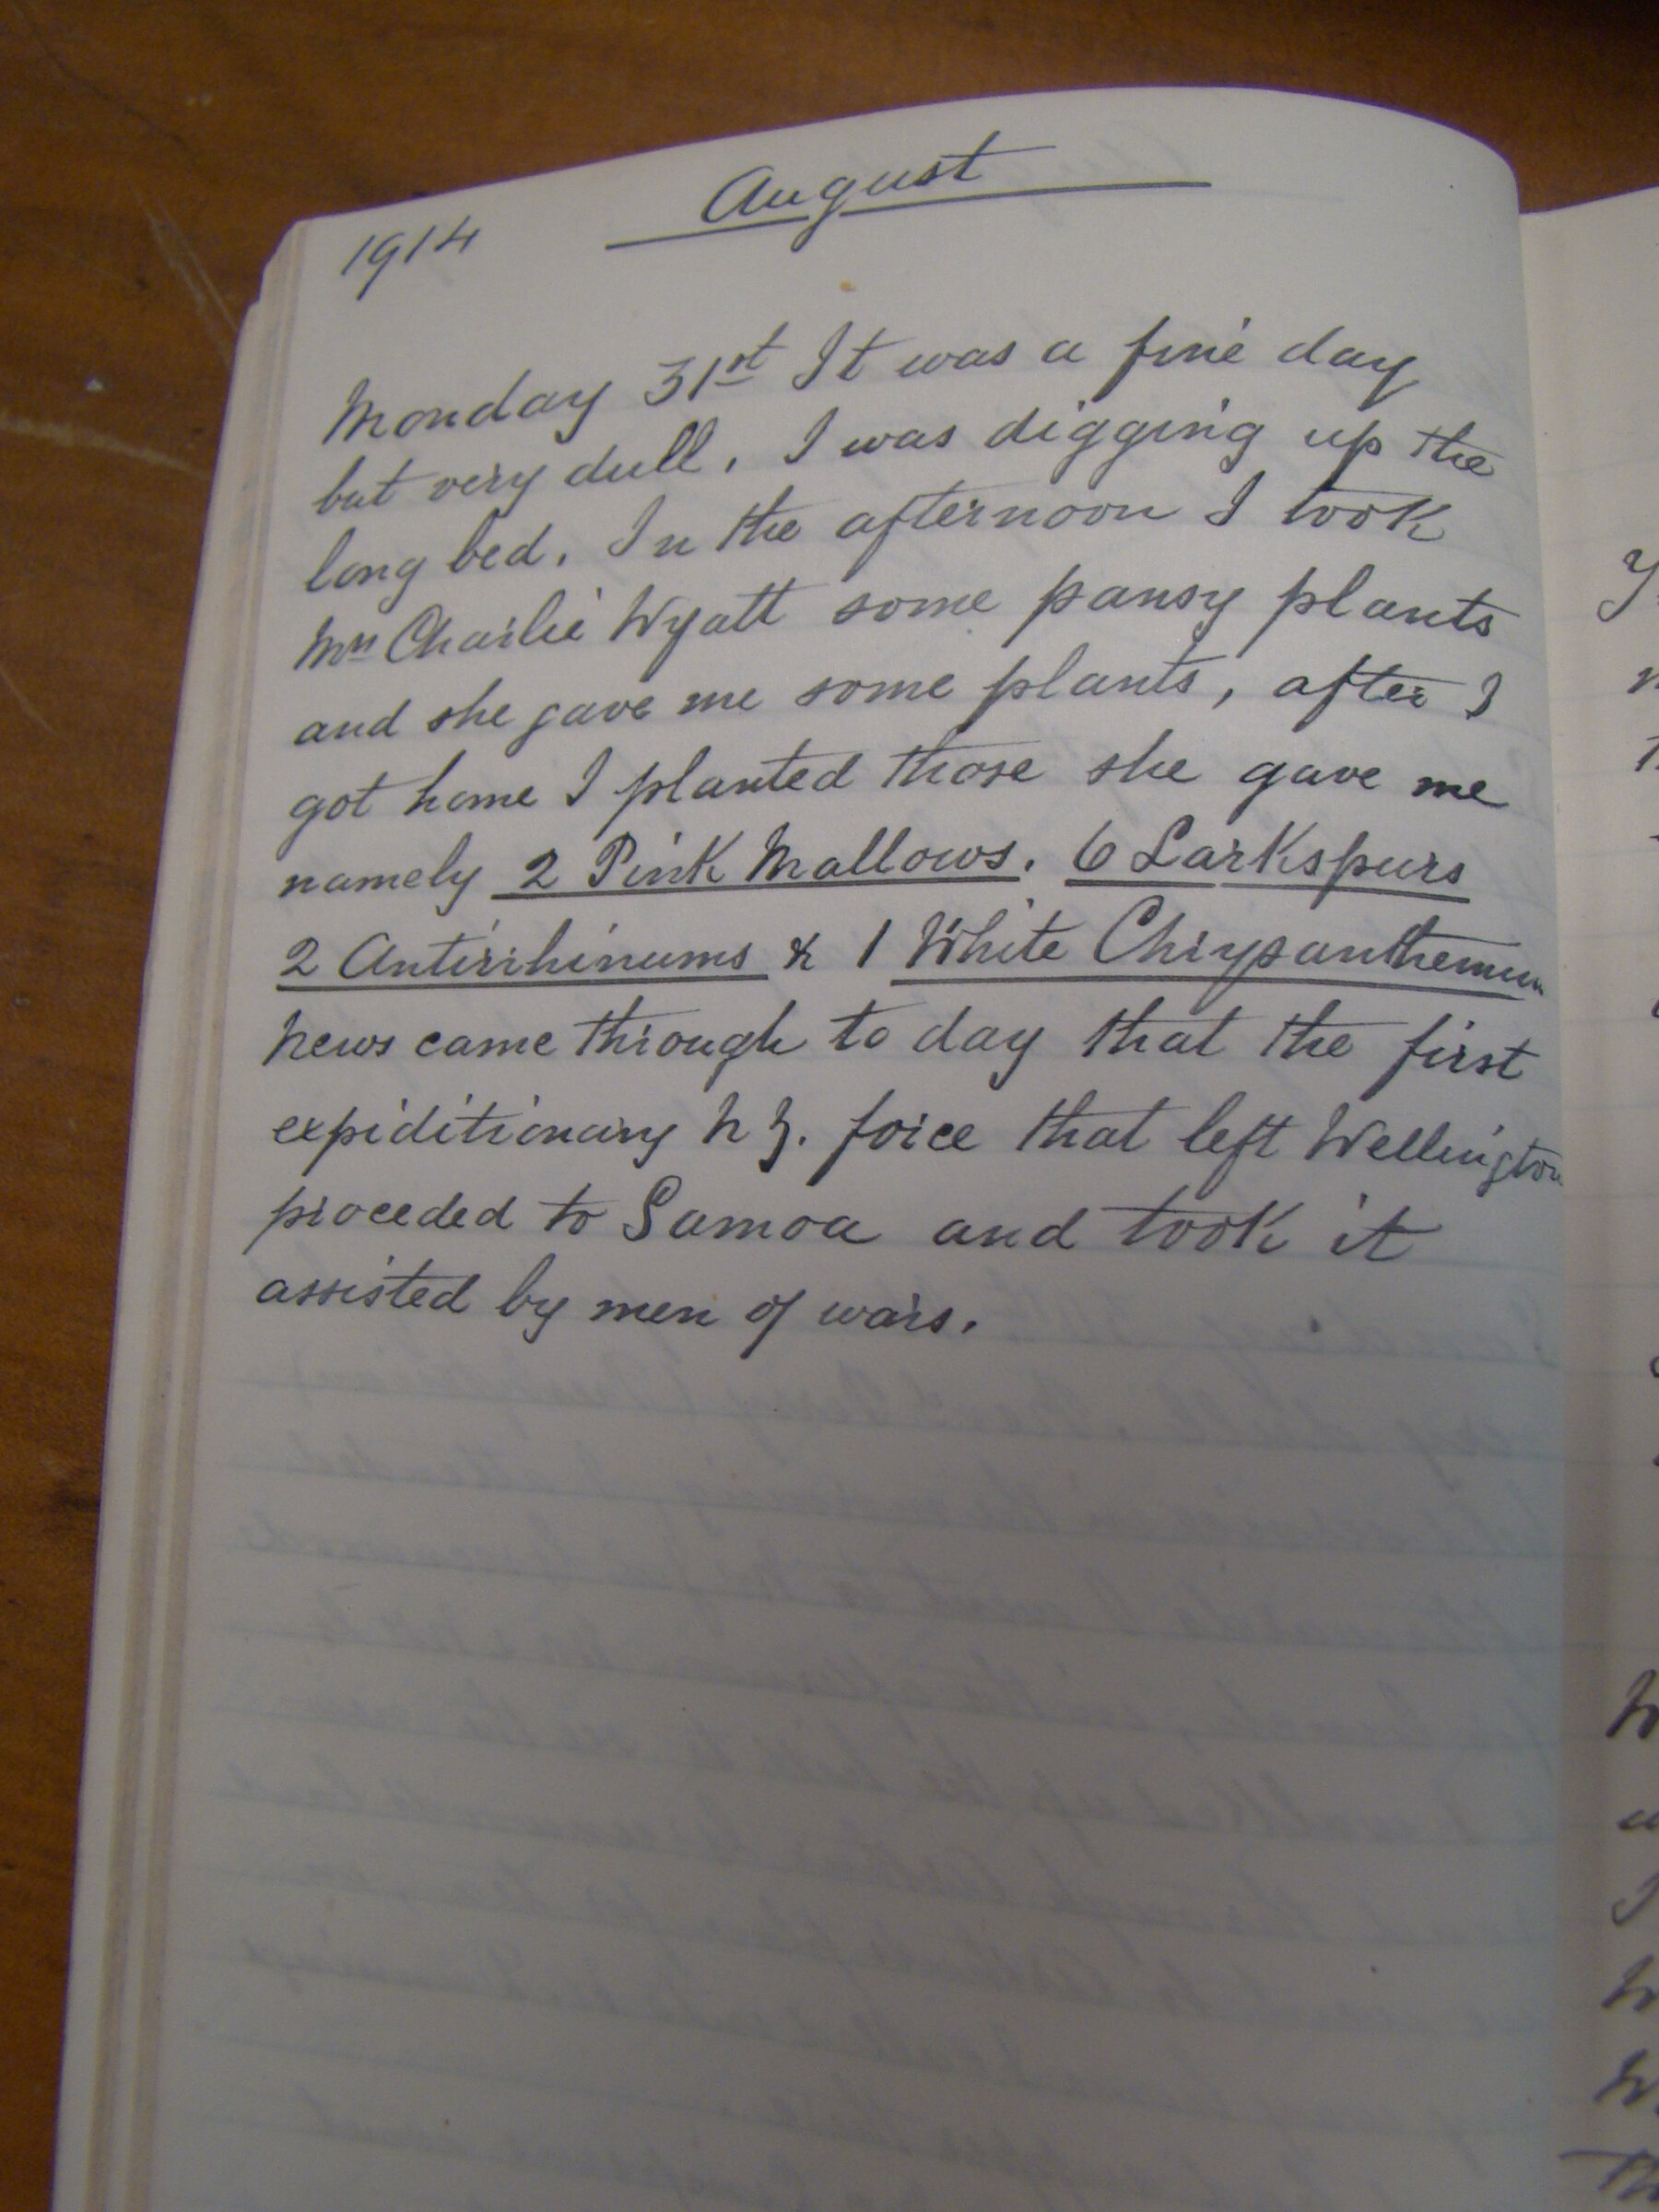 August
1914
Monday 31st It was a fine day
but very dull, I was digging up the
long bed. In the afternoon I took
Mrs Charlie Wyatt some pansy plants
and she gave me some plants, after I
got home I planted those she gave me
namely 2 Pink Mallows. 6 Larkspurs
2 Antirrhinums & 1 White Chrysanthemum
News came through to day that the first
expiditionary N Z. force that left Wellington
proceded to Samoa and took it
assisted by men of wars.